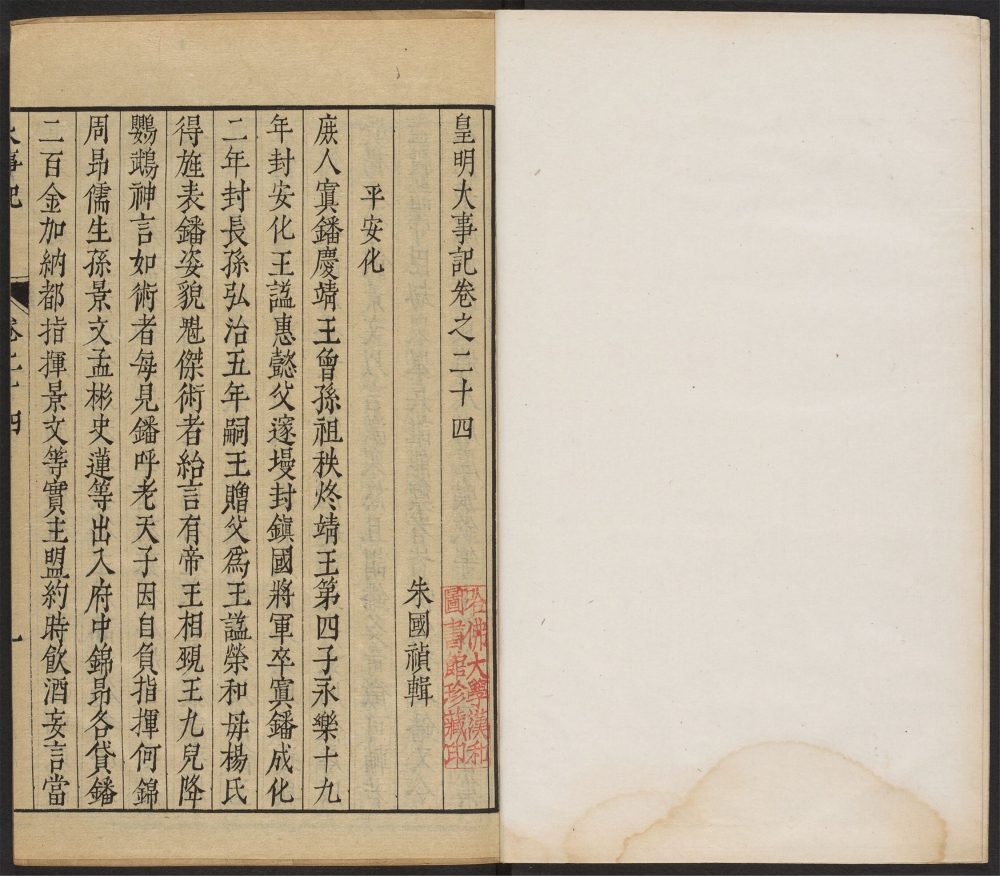 皇明大事記卷之二十四
朱國禎輯
哈佛大學漢和
圖書館珍藏印
平安化
庶人寘鐇慶靖王曾孫祖秩炵靖王第四子永樂十九
年封安化王謚惠懿父邃墁封鎮國將軍卒寘鐇成化
二年封長孫弘治五年嗣王贈父爲王謚榮和母楊氏
得旌表鐇姿貌魁傑術者紿言有帝王相覡王九兒降
鸚鵡神言如術者每見鐇呼老天子因自負指揮何錦
周昂儒生孫景文孟彬史蓮等出入府中錦昂各貸鐇
二百金加納都指揮景文等實主盟約時飲酒妄言當
大事記 卷二十四